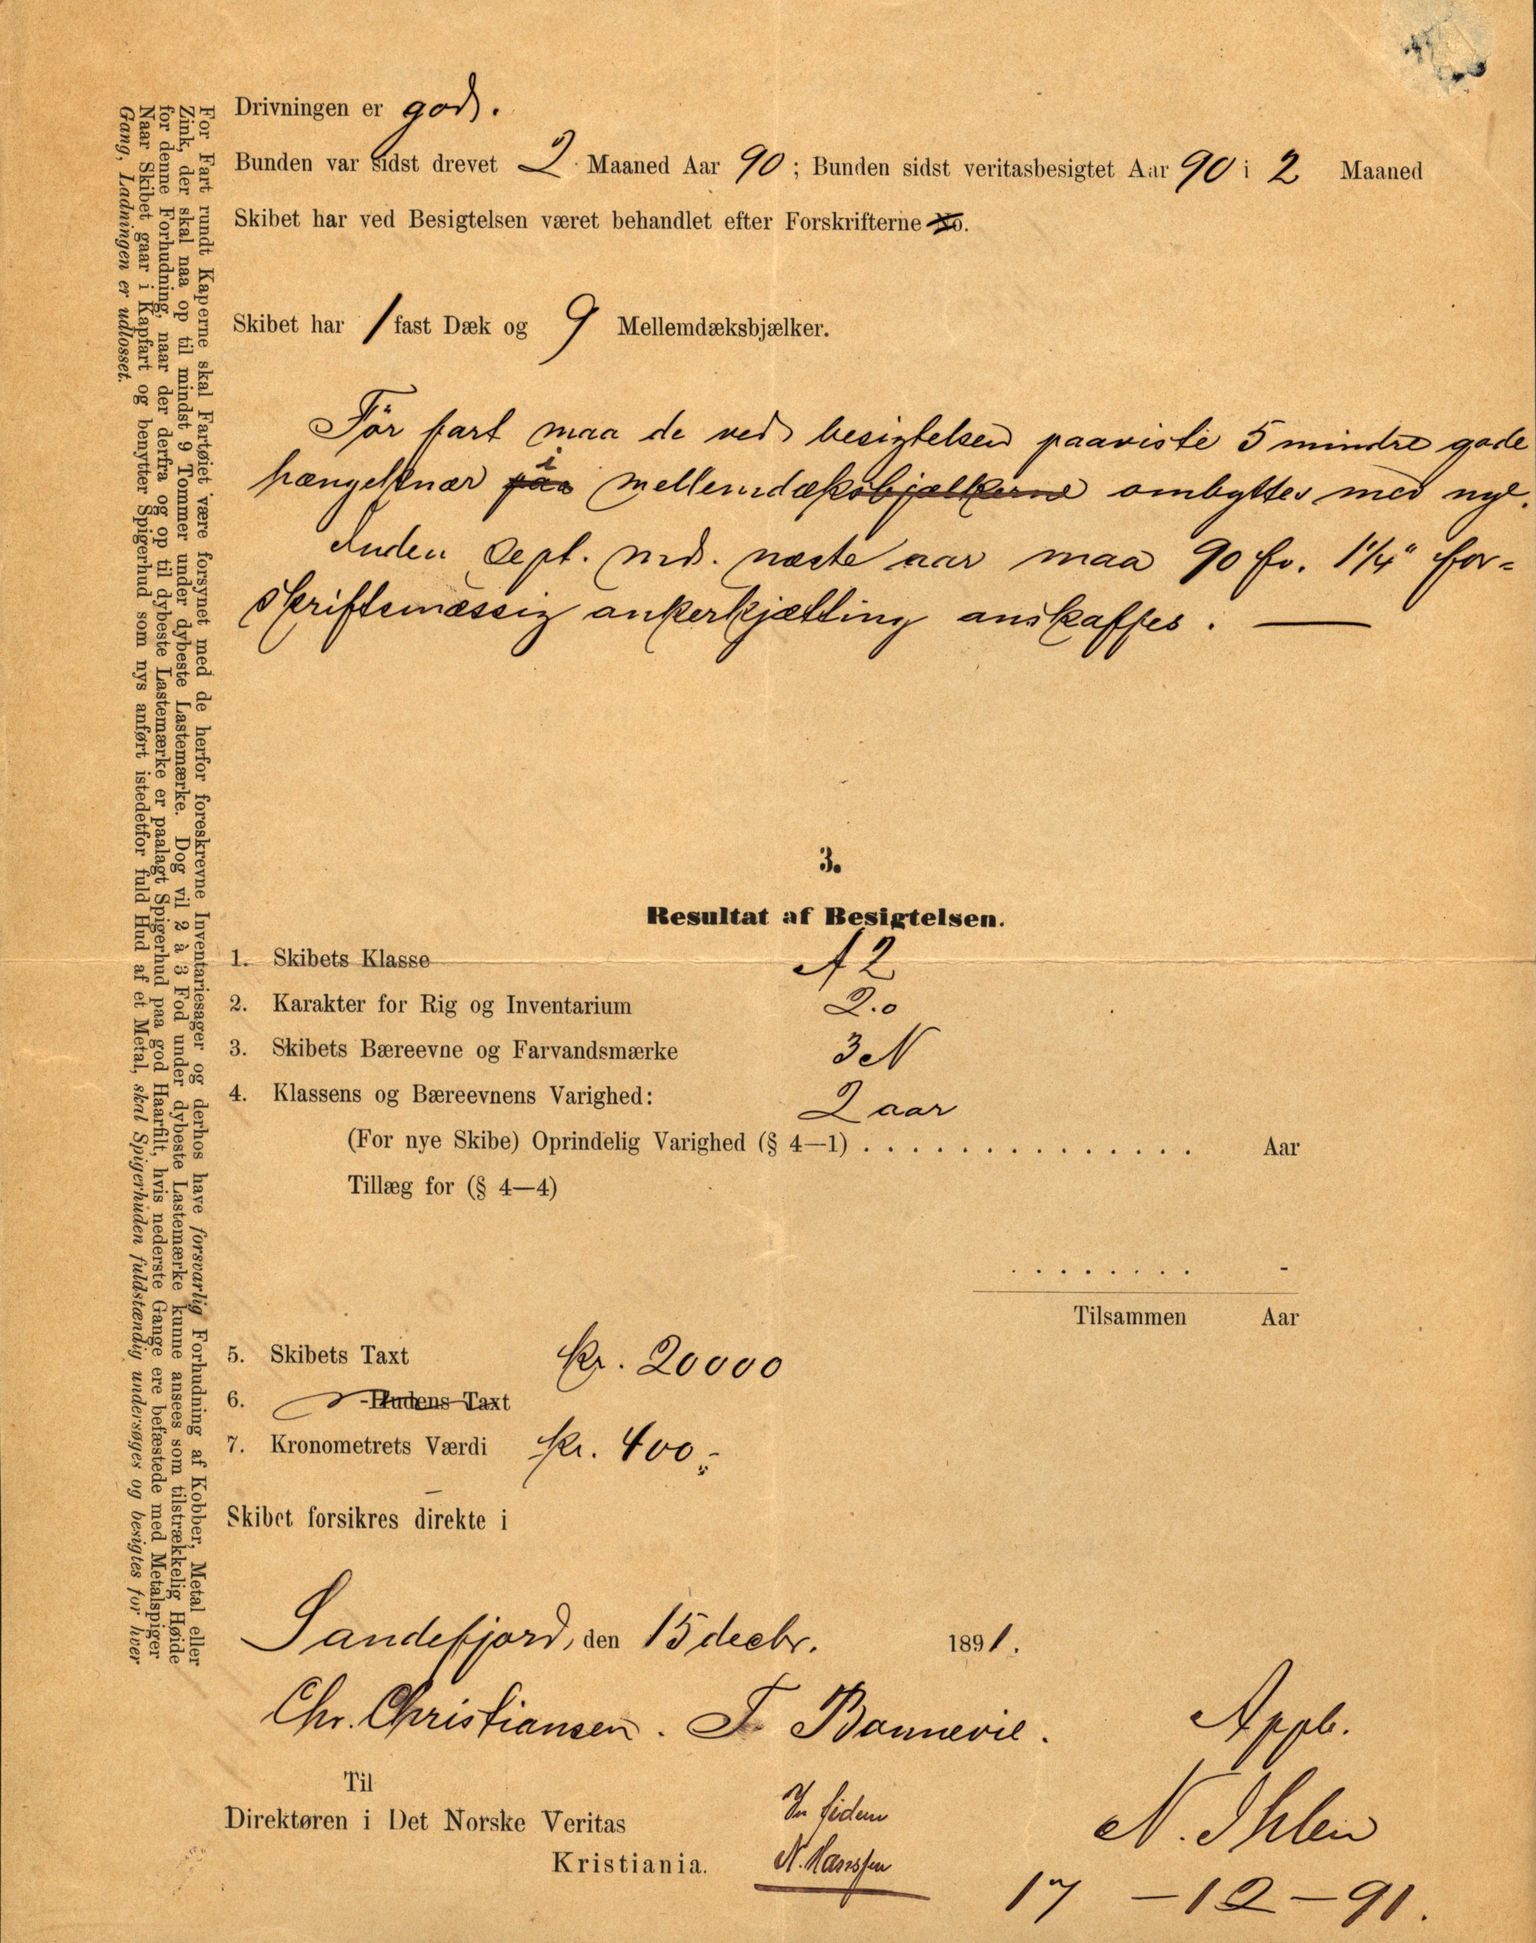 Drivningen er god.
Bunden var sidst drevet 2 Maaned Aar 90 ; Bunden sidst veritasbesigtet Aar 90 i 2 Maaned
Skibet har ved Besigtelsen været behandlet efter Forskrifterne No.
Skibet har 1 fast Dæk og 9 Mellemdæksbjælker.
För fart maa de ved besigtelsen paaviste 5 mindre gode
i
hængeknær paa mellemdæksbjælkerne ombyttes med nye.
Inden Sept. md. næste aar maa 90 fv. 1 1/4" for=
skriftsmæssig ankerkjætting anskaffes. —
3.
Resultat af Besigtelsen.
1. Skibets Klasse A 2
2. Karakter for Rig og Inventarium 2.0
3. Skibets Bæreevne og Farvandsmærke 3 N
4. Klassens og Bæreevnens Varighed: 2 aar
(For nye Skibe) Oprindelig Varighed (§ 4—1) . . . . . . . . . . . . . . . Aar
Tillæg for (§ 4—4)
. . . . . . . . -
Tilsammen Aar
5. Skibets Taxt kr. 20000
6. -Hudens Taxt
7. Kronometrets Værdi kr. 400,-
Skibet forsikres direkte i
Sandefjord, den 15 decbr. 1891.
Chr. Christiansen. F Bonnevie. Appb.
Til
Direktøren i Det Norske Veritas
N. Ihlen
Kristiania. N. Hanssen
17 — 12 — 91.
For Fart rundt Kaperne skal Fartøiet være forsynet med de herfor foreskrevne Inventariesager og derhos have forsvarlig Forhudning af Kobber, Metal eller
Zink, der skal naa op til mindst 9 Tommer under dybeste Lastemærke. Dog vil 2 à 3 Fod under dybeste Lastemærke kunne ansees som tilstrækkelig Høide
for denne Forhudning, naar der derfra og op til dybeste Lastemærke er paalagt Spigerhud paa god Haarfilt, hvis nederste Gange ere befæstede med Metalspiger
Naar Skibet gaar i Kapfart og benytter Spigerhud som nys anført istedetfor fuld Hud af et Metal, skal Spigerhuden fuldstændig undersøges og besigtes for hver
Gang, Ladningen er udlosset.